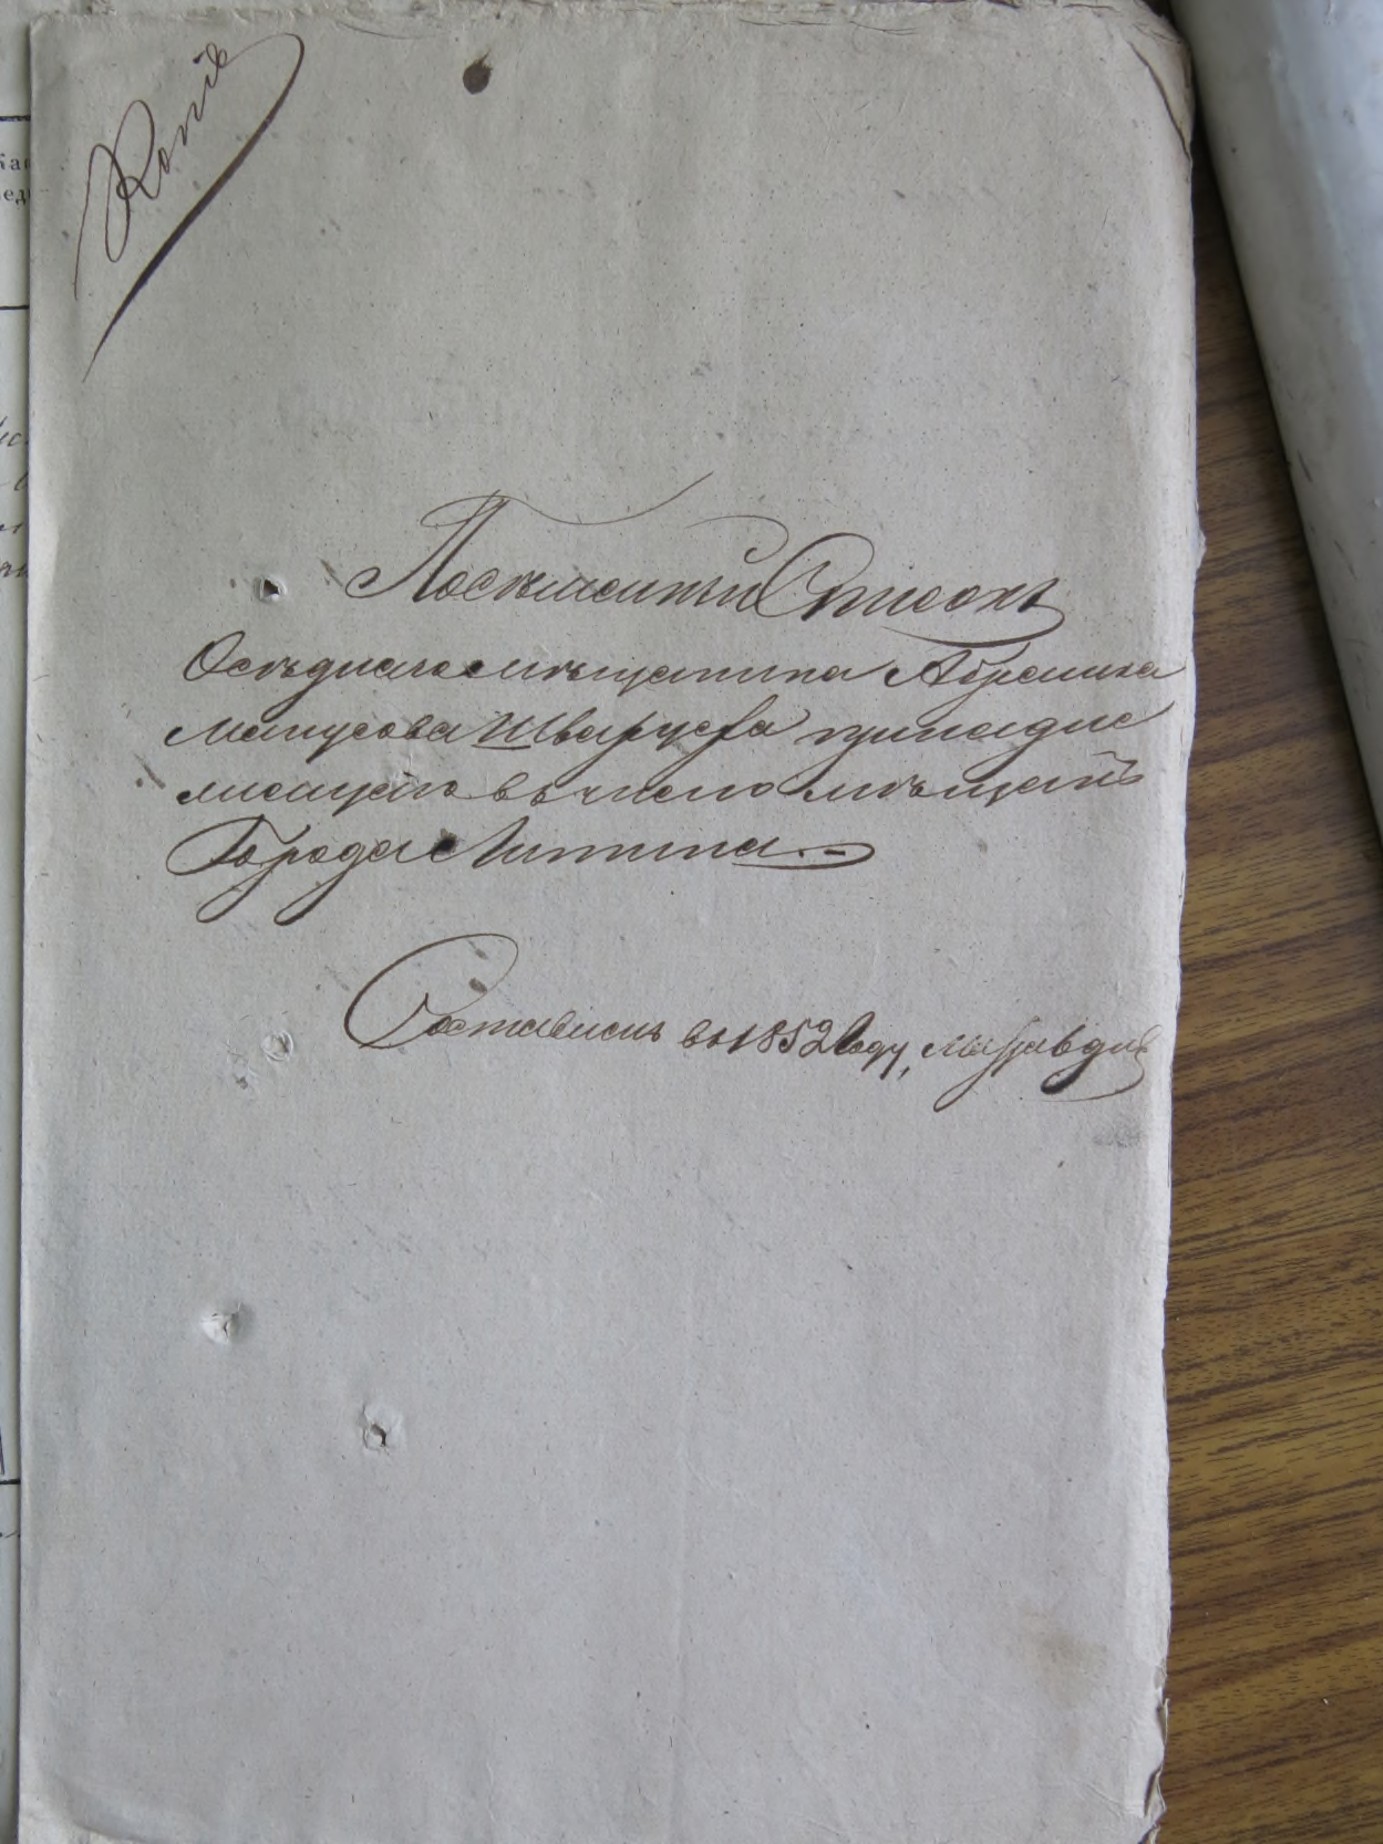 Копія
Посемейный Списокъ
Осѣдлаго мѣщанина Абрамка
Манусова Шварцега принадле
жащаго въ число мѣщанъ
Города Литина.
Составленъ въ 1852 Году,